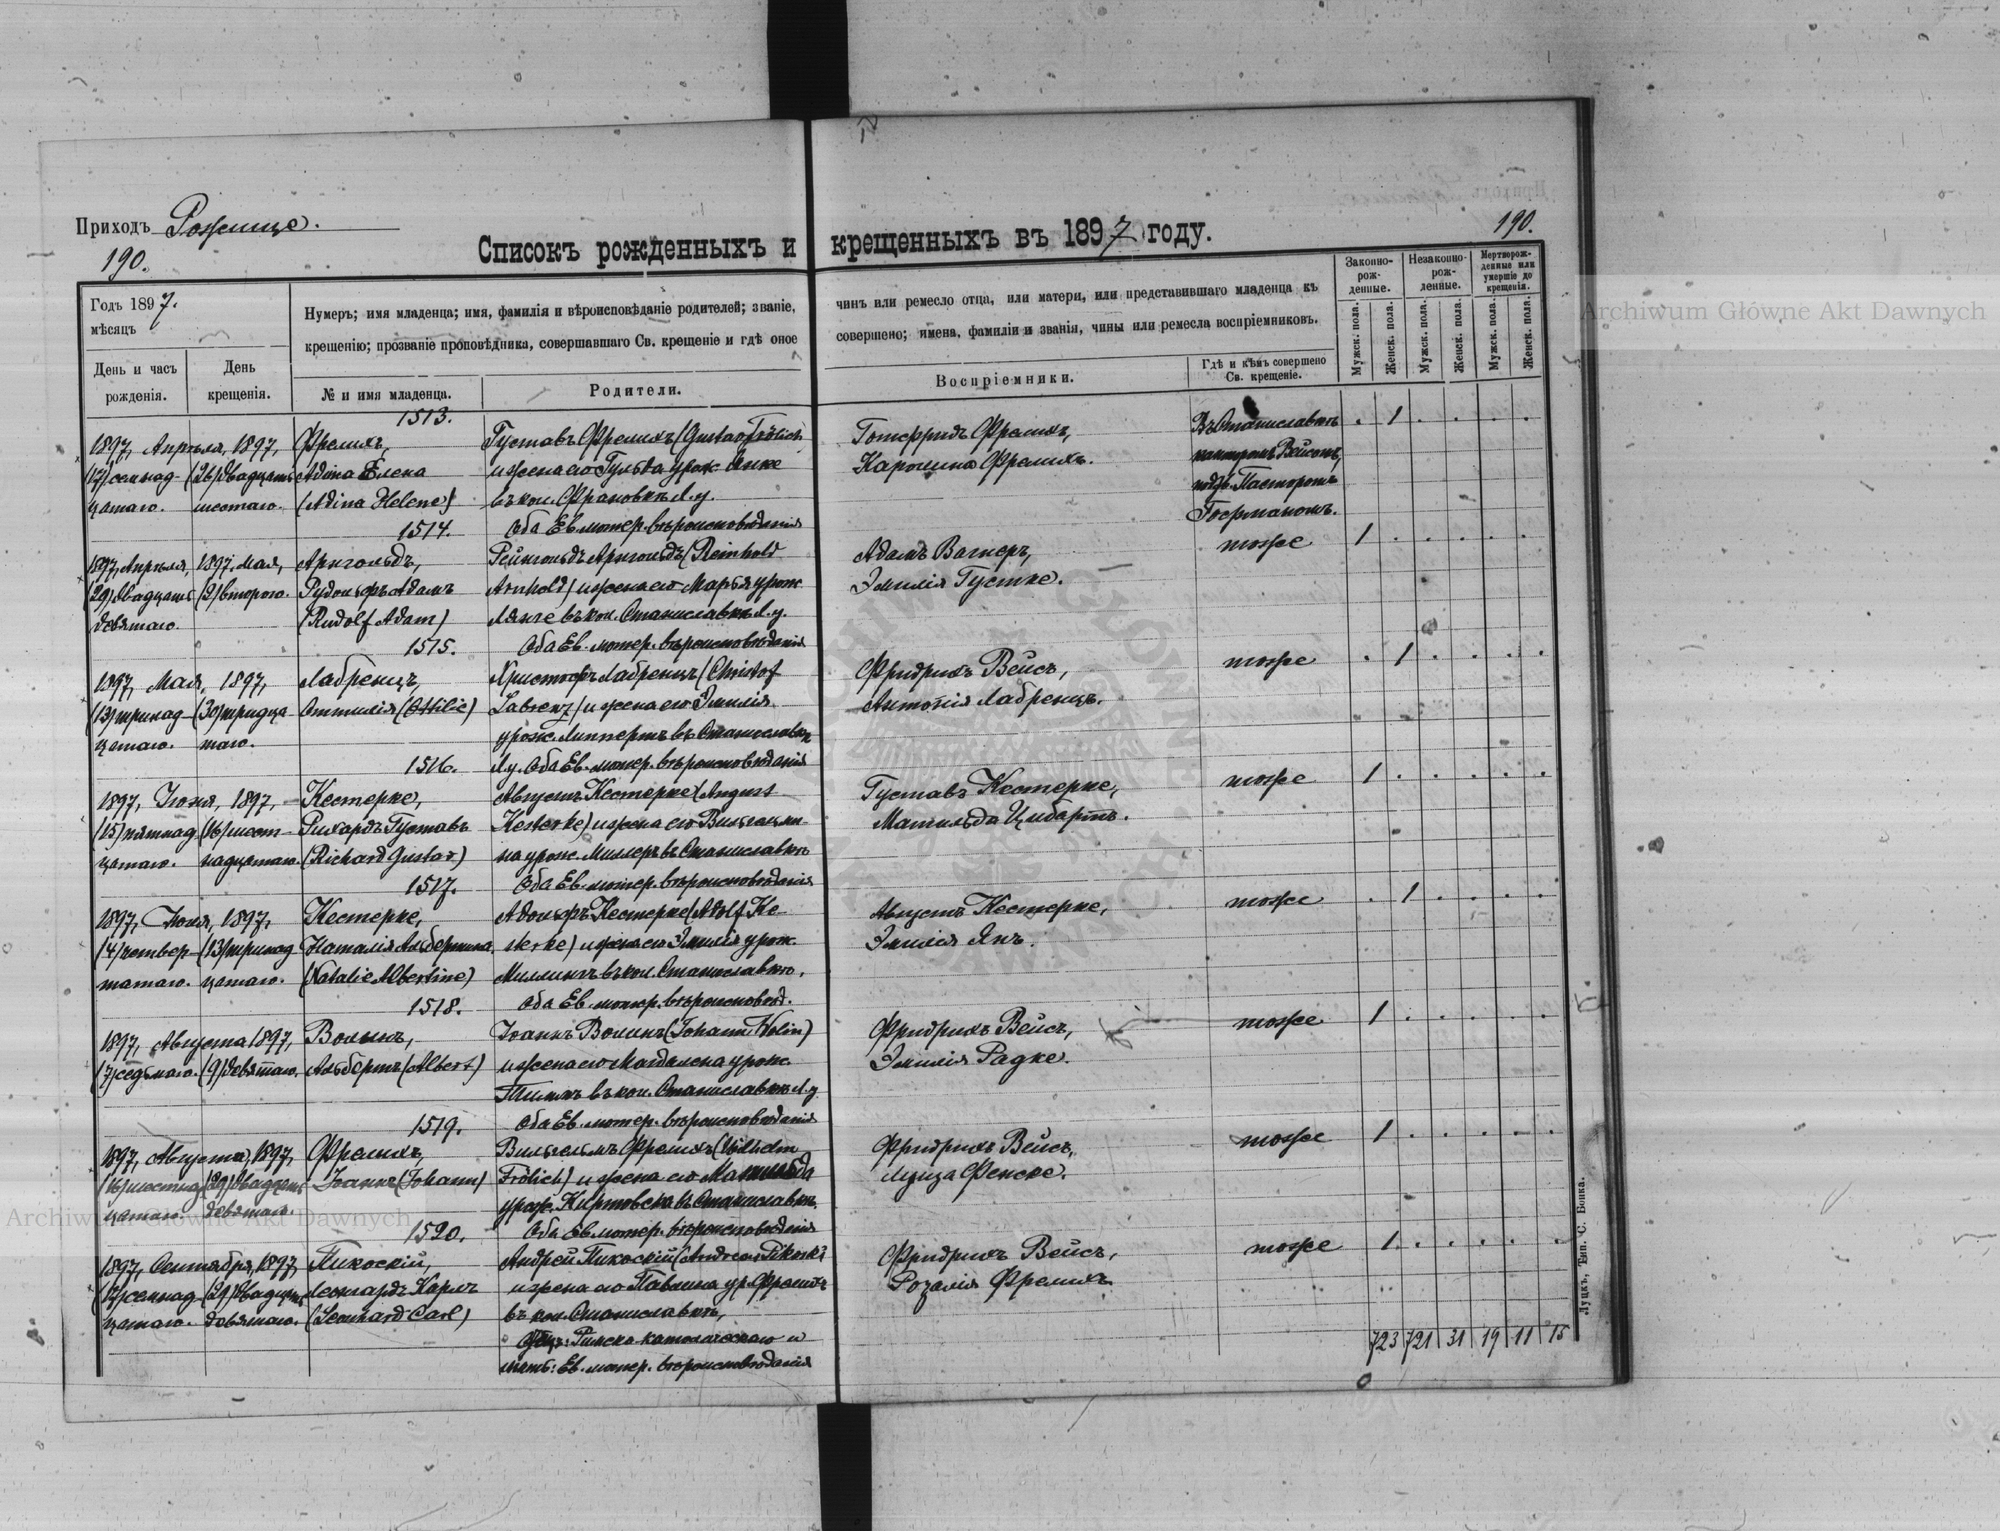 Приходъ Рожище.
190.
190.
Списокъ рожденныхъ и крещенныхъ въ 1897 году.
Годъ 1897.
мѣсяцъ
День и часъ рожденія.
День крещенія.
Нумеръ; имя младенца; имя, фамилія и вѣроисповѣданіе родителей; званіе,
крещенію; прозваніе проповѣдника, совершавшаго Св. крещеніе и гдѣ оное
№ и имя младенца.
Родители.
чинъ или ремесло отца, или матери, или представившаго младенца къ
совершено; имена, фамиліи и званія, чины или ремесла воспріемниковъ.
Воспріемники.
Гдѣ и кѣмъ совершено
Св. крещеніе.
Законно-
рож-
денные.
Незаконно-
рож-
денные.
Мертворож-
денные или
умершіе до
крещенія.
Мужск. пола.
Женск. пола.
Мужск. пола.
Женск. пола.
Мужск. пола.
Женск. пола.
1513.
1897, Апрѣля, 1897, Фрелихъ, Густавъ Фрелихъ (Gustav Frölich) Готфридъ Фрелихъ, Въ Станиславкѣ . 1 . . . .
(17) семнад- (26) двадцать Адина Елена и жена его Гульда урож. Янке Каролина Фрелихъ. канторомъ Вейсомъ,
цатаго. шестаго. (Adina Helene) въ кол. Франовкѣ Л. у. подъ Пасторомъ
1514. Оба Ев. лютер. вѣроисповѣданія Госрманомъ.
1897, Апрѣля, 1897, Мая, Арнгольдъ, Рейнгольдъ Арнгольдъ (Reinhold Адамъ Вагнеръ, тоже 1 . . . . .
(29) двадцать (2) второго. Рудольфъ Адамъ Arnhold) и жена его Марья урож. Эмилія Густке.
девятаго. (Rudolf Adam) Лянге въ кол. Станиславкѣ Л. у.
1515. Оба Ев. лютер. вѣроисповѣданія
1897, Мая, 1897, Лабренцъ, Христофъ Лабренцъ (Christof Фридрихъ Вейсъ, тоже . 1 . . . .
(13) тринад- (30) тридца- Оттилія (Ottilie) Labrenz) и жена его Эмилія Антонія Лабренцъ.
цатаго. таго. урож. Липпертъ въ Станиславкѣ
1516. Л. у. Оба Ев. лютер. вѣроисповѣданія
1897, Іюня, 1897, Кестерке, Августъ Кестерке (August Густавъ Кестерке, тоже 1 . . . . .
(15) пятнад- (16) шест- Рихардъ Густавъ Kesterke) и жена его Вильгельми- Матильда Цибартъ.
цатаго. надцатаго. (Richard Gustav) на урож. Миллеръ въ Станиславкѣ
1517. Оба Ев. лютер. вѣроисповѣданія
1897, Іюля, 1897, Кестерке, Адольфъ Кестерке (Adolf Ke- Августъ Кестерке, тоже . 1 . . . .
(4) четвер- (13) тринад- Наталія Альбертина sterke) и жена его Эмилія урож. Эмилія Янъ.
татаго. цатаго. (Natalie Albertine) Миллингъ въ кол. Станиславкѣ.
1518. Оба Ев. лютер. вѣроисповѣд.
1897, Августа 1897, Волинъ, Іоаннъ Волинъ (Johann Wolin) Фридрихъ Вейсъ, тоже 1 . . . . .
(7) седьмаго. (9) девятаго. Альбертъ (Albert) и жена его Магдалена урож. Эмилія Радке.
Тиммъ въ кол. Станиславкѣ Л. у.
1519. Оба Ев. лютер. вѣроисповѣданія
1897, Августа, 1897, Фрелихъ, Вильгельмъ Фрелихъ (Wilhelm Фридрихъ Вейсъ, тоже 1 . . . . .
(16) шестнад- (29) двадцать Іоаннъ (Johann) Frölich) и жена его Матильда Луиза Фенске.
цатаго. девятаго. урож. Киртовска въ Станиславкѣ.
1520. Оба Ев. лютер. вѣроисповѣданія
1897, Сентября, 1897, Пикоскій, Андрей Пикоскій (Andreas Pikoski Фридрихъ Вейсъ, тоже 1 . . . . .
(17) семнад- (29) двадцать Леонгардъ Карлъ и жена его Павлина ур. Фрелихъ Розалія Фрелихъ.
цатаго. девятаго. (Leonhard Carl) въ кол. Станиславкѣ,
Отецъ: Римско-католическаго и
мать: Ев. лютер. вѣроисповѣданія
723 721 31 19 11 15
Луцкъ, Тип. С. Бонка.
Archiwum Główne Akt Dawnych
Archiwum Główne Akt Dawnych